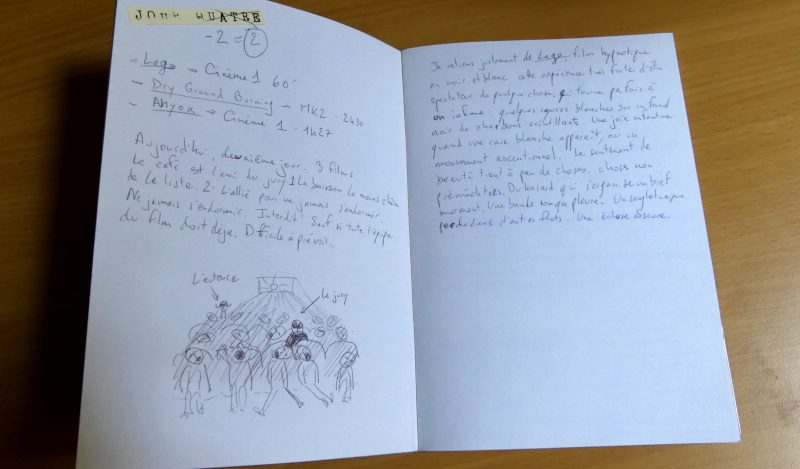 JOUR QUATRE
- 2 = 2
- Lago → Cinéma 1 60'
- Dry Ground Burning → MK2 - 2h30
- Anyox → Cinéma 1 - 1h27
Aujourd'hui, deuxième jour. 3 films
Le café est l'ami du jury 1 La boisson la moins chère
de la liste. 2. L'allié pour ne jamais s'endormir.
Ne jamais s'endormir. Interdit! Sauf si toute l'équipe
du film dort déjà. Difficile à prévoir...
L'auteur·e
Le jury
Je retiens justement de Lago, film hypnotique
en noir et blanc cette expérience très forte d'être
spectateur de quelque chose, qui tourne parfois à
un infime: quelques carrés blanches sur un fond
noir de charbons scintillants. Une joie enfantine
quand une case blanche apparaît, ou un
mouvement Le sentiment de
beauté tient à peu de choses. choses non
préméditées. Du hasard qui s'organise un bref
moment. Une bande son qui pleure. Un sanglot
perdu dans d'autres flots. Une obscure.